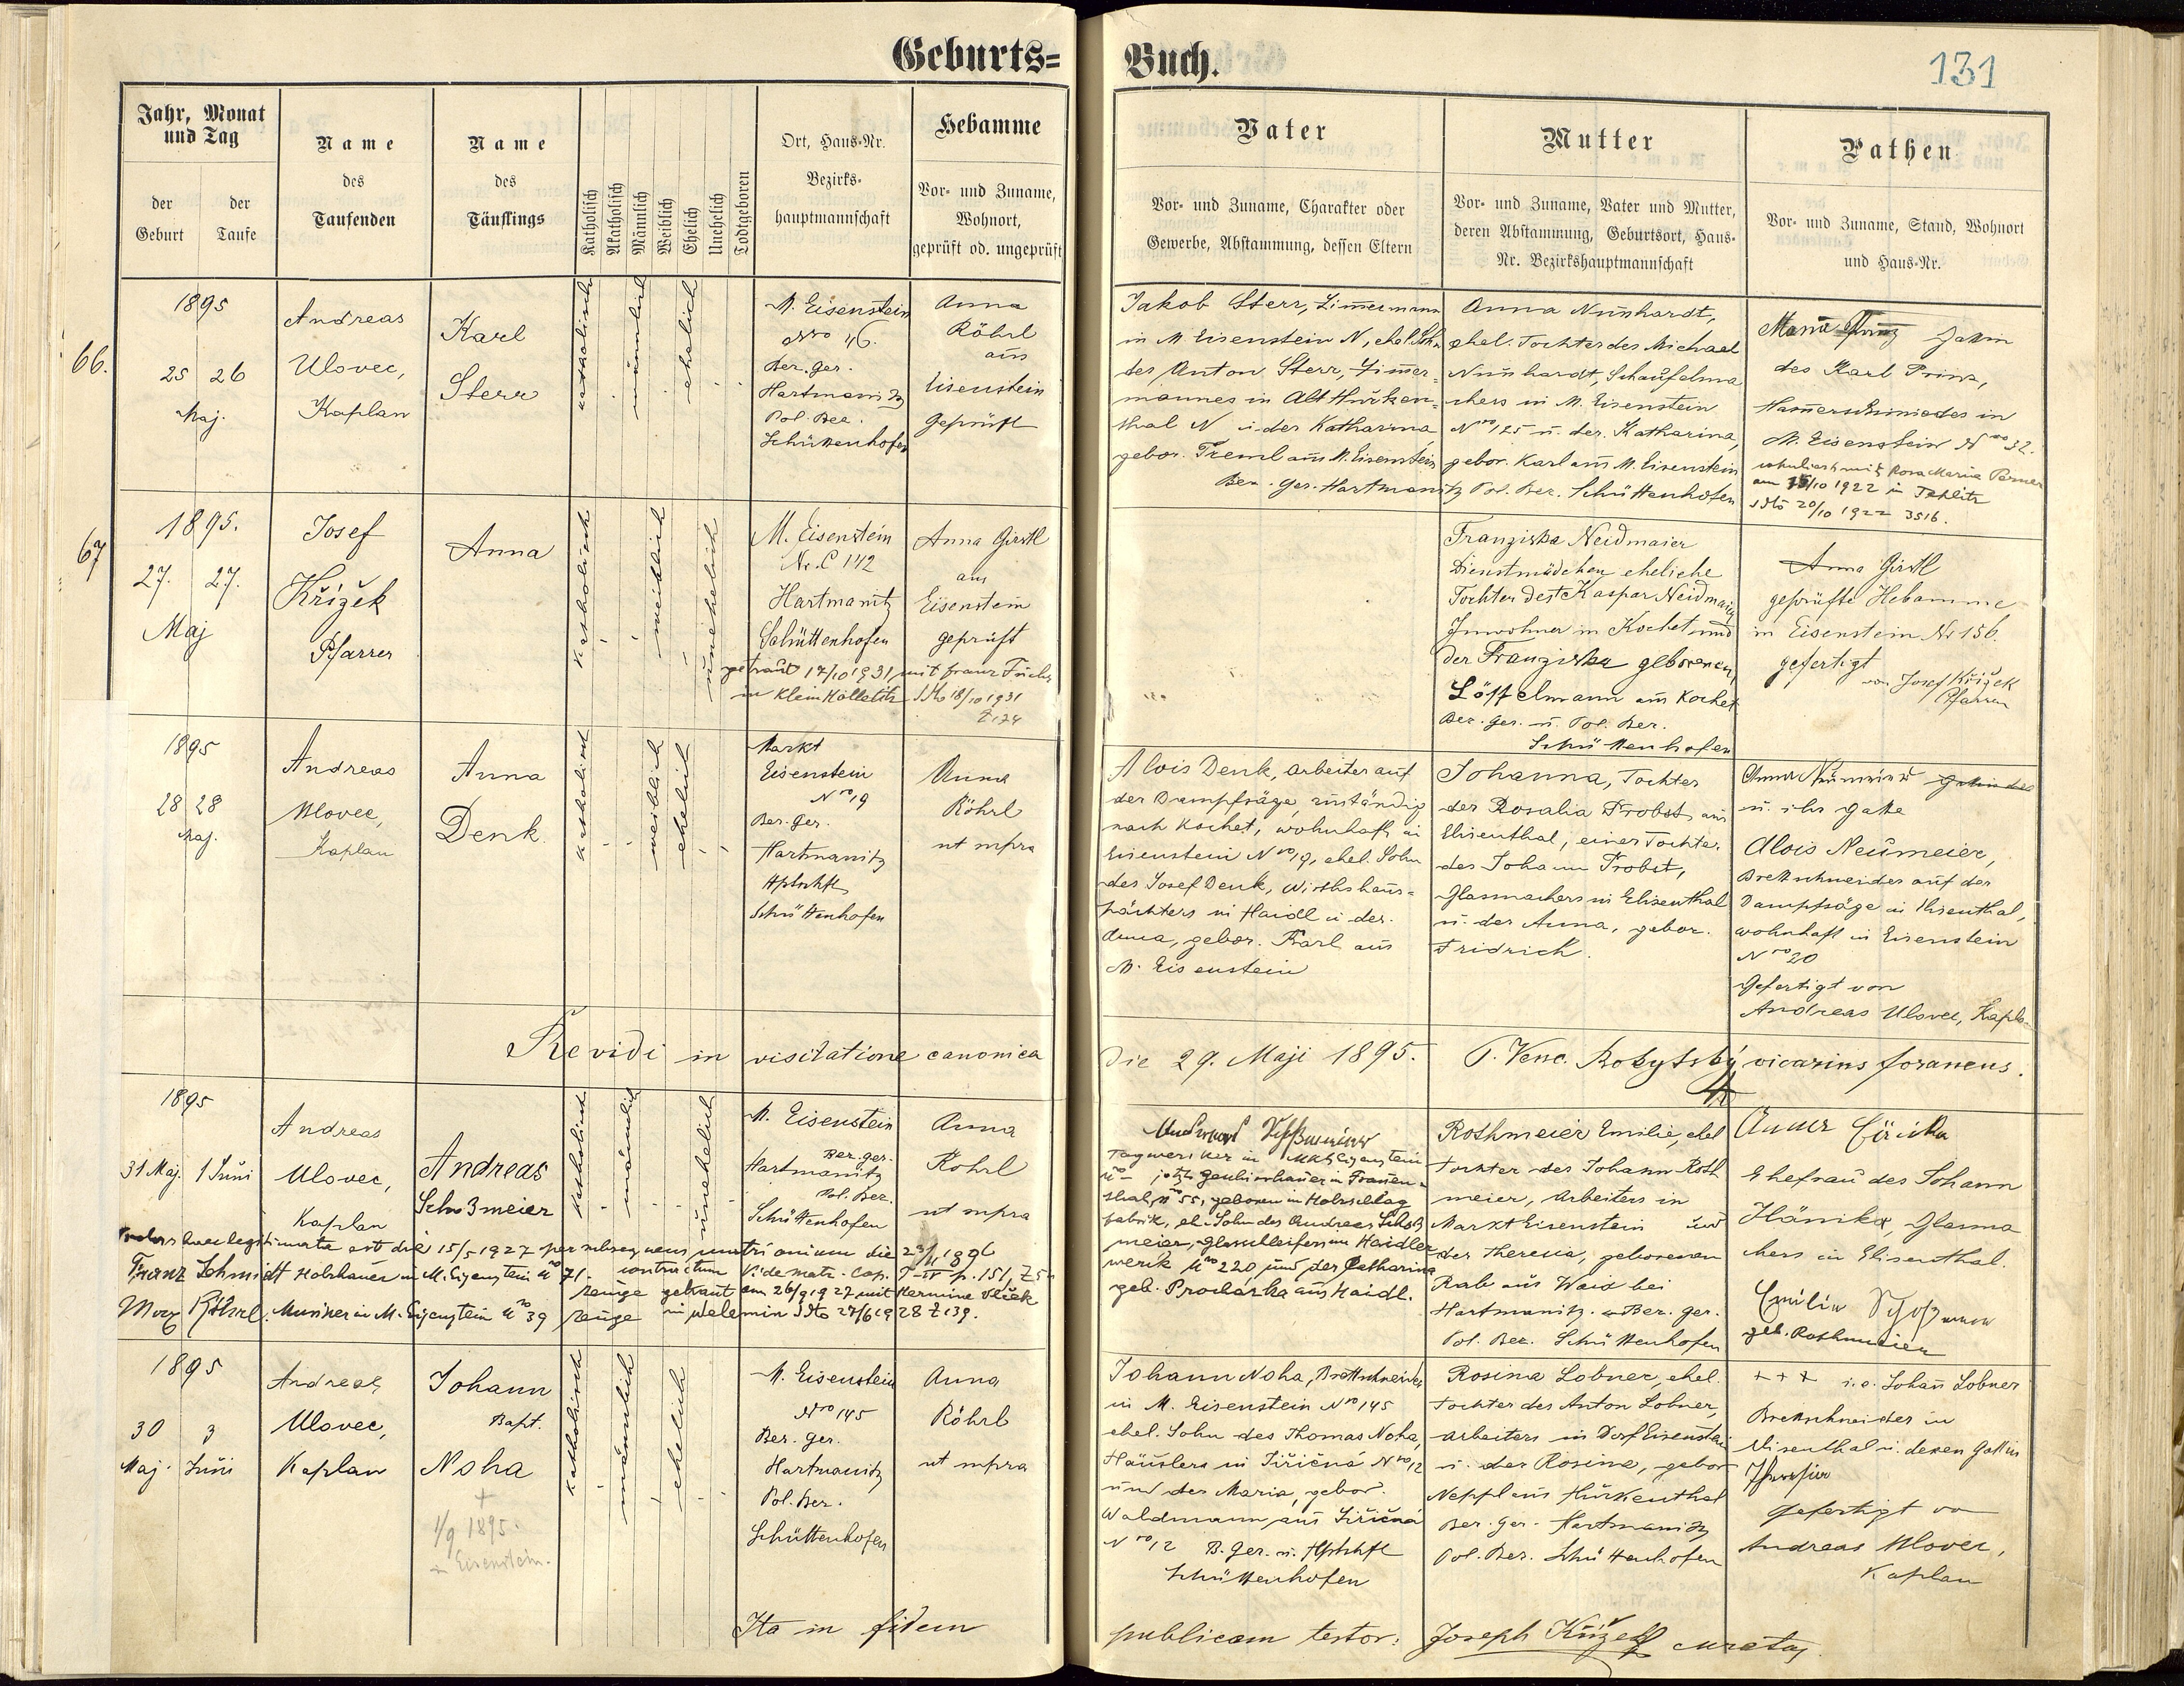 Geburts=
Buch.
131
Jahr, Monat
und Tag
der
Geburt
der
Taufe
Name
des
Taufenden
Name
des
Täuflings
Katholisch
Akatholisch
Männlich
Weiblich
Ehelich
Unehelich
Todtgeboren
Ort, Haus-Nr.
Bezirks-
hauptmannschaft
Hebamme
Vor- und Zuname,
Wohnort,
geprüft od. ungeprüft
Vater
Vor- und Zuname, Charakter oder
Gewerbe, Abstammung, dessen Eltern
Mutter
Vor- und Zuname, Vater und Mutter,
deren Abstammung, Geburtsort, Haus-
Nr. Bezirkshauptmannschaft
Pathen
Vor- und Zuname, Stand, Wohnort
und Haus-Nr.
66.
1895
25 26
Maj.
Andreas
Ulovec,
Kaplan
Karl
Sterr
katholisch
männlich
ehelich
M. Eisenstein
Nro 46.
Ber. Ger.
Hartmanitz
Pol. Bez.
Schüttenhofen
Anna
Röhrl
aus
Eisenstein
geprüft
Jakob Sterr, Zimmermann
in M Eisenstein N, ehel. Sohn
des Anton Sterr, Zimmer=
mannes in Alt Hurken=
thal N u. der Katharina,
gebor. Treml aus M. Eisenstein
Bez. Ger. Hartmanitz Pol. Bez. Schüttenhofen
Anna Nunhardt,
ehel. Tochter des Michael
Nunhardt, Schaufelma
chers in M. Eisenstein
Nro 125 u. der Katharina,
gebor. Karl aus M. Eisenstein
Maria Prinz Gattin
des Karl Prinz,
Hammerschmiedes in
M. Eisenstein Nro 32.
am 15/10 1922 in Teplitz
Sdto 20/10 1922 3516.
67
1895.
27. 27.
Maj
Josef
Křížek
Pfarrer
Anna
katholisch
weiblich
unehelich
M. Eisenstein
Nr. C 142
Hartmanitz
Schüttenhofen
Anna Gerstl
aus
Eisenstein
geprüft
getraut 17/10 1931 mit Franz
in Klein Sdto 18/10 1931
Z 124
Franziska Neidmaier
Dienstmädchen eheliche
Tochter des Kaspar Neidmaier
Inwohner in Kochet und
der Franziska geborenen
Löffelmann aus Kochet
Bez. Ger. u. Pol. Bez.
Schüttenhofen
Anna Gerstl
geprüfte Hebamme
in Eisenstein Nr 156.
gefertigt
von Josef Křížek
Pfarrer
1895
28 28
Maj.
Andreas
Ulovec,
Kaplan
Anna
Denk
katholisch
weiblich
ehelich
Markt
Eisenstein
Nro 19
Ber. Ger.
Hartmanitz
Hptschft
Schüttenhofen
Anna
Röhrl
ut supra
Alois Denk, Arbeiter auf
der Dampfsäge, zuständig
nach Kochet, wohnhaft in
Eisenstein Nro 19, ehel. Sohn
des Josef Denk, Wirthshaus=
pächters in Haidl u. der
Anna, gebor. Karl aus
M. Eisenstein
Johanna, Tochter
der Rosalia Probst aus
Elisenthal, einer Tochter
des Johann Probst,
Glasmachers in Elisenthal
u. der Anna, gebor.
Fridrich.
Anna Neumeier
u. ihr Gatte
Alois Neumeier,
Brettschneider auf der
Dampfsäge in Elisenthal,
wohnhaft in Eisenstein
Nro 20
Gefertigt von
Andreas Ulovec, Kaplan
Revidi in visitatione canonica
die 29. Maji 1895. P. Venc. vicarius foraneus.
1895
31 Maj. 1 Juni
Andreas
Ulovec,
Kaplan
Andreas
Schoßmeier
katholisch
männlich
unehelich
M. Eisenstein
Ber. Ger.
Hartmanitz
Pol. Bez.
Schüttenhofen
Anna
Röhrl
ut supra
legitimata est die 15/5 1927 per subsequens matrimonium die 23/11 1896
Franz Schmidt Holzhauer in M. Eisenstein No 71. contractum Vide Matr. Cop. T IV p. 151, Z 5
Zeuge getraut am 26/9 1927 mit Hermine Vlček
Max Röhrl. Musiker in M. Eisenstein No 39 Zeuge in Welemin Sdto 27/6 1928 Z 139.
Andreas Schoßmeier
Tagwerker in Mkt Eisenstein
thal, No 55, geboren in Holzschlag
fabrik, el. Sohn des Andreas Schoß
meier, Glasschleifers im Haidler
werk No 220, und der Katharina
geb. Procházka aus Haidl.
Rothmeier Emilie, ehel
Tochter des Johann Roth
meier, Arbeiters in
Markt Eisenstein und
der Theresia, geborenen
Rab aus Waid bei
Hartmanitz. Ber. Ger.
Pol. Bez. Schüttenhofen
Anna Hänika
Ehefrau des Johann
Hänika, Glasma
chers in Elisenthal.
Emilie Schoßmeier
geb. Rothmeier
1895
30 3
Maj. Juni
Andreas
Ulovec,
Kaplan
Johann
Bapt.
Noha
+
1/9 1895.
in Eisenstein.
katholisch
männlich
ehelich
M. Eisenstein
Nro 145
Ber. Ger.
Hartmanitz
Pol. Bez.
Schüttenhofen
Anna
Röhrl
ut supra
Johann Noha, Brettschneider
in M. Eisenstein Nro 145
ehel. Sohn des Thomas Noha,
Häuslers in Jiřičná Nro 12
und der Maria, gebor.
Waldmann aus Jiřičná
Nro 12 B. Ger. u. Hptschft
Schüttenhofen
Rosina Lobner, ehel.
Tochter des Anton Lobner,
Arbeiters in Dorf Eisenstein
u. der Rosina, gebor
Neppl aus Hurkenthal
Ber. Ger. Hartmanitz
Pol. Bez. Schüttenhofen
+++ i. e. Johann Lobner
Brettschneider in
Elisenthal u. deren Gattin
Theresia
Gefertigt von
Andreas Ulovec,
Kaplan
Ita in fidem
publicam testor: Joseph Křížek curatus